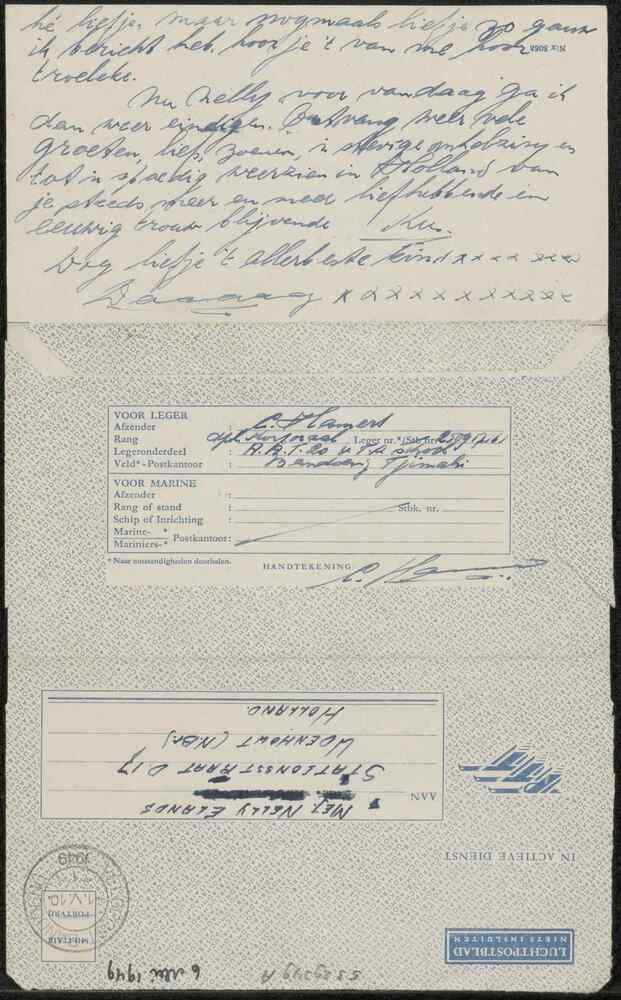 hé liefje, maar nogmaals liefje zo gauw
ik bericht heb, hoor je 't van me hoor
troeleke.
Nu Nelly voor vandaag ga ik
dan weer eindigen. Ontvang weer vele
groeten, liefs, zoenen, 'n stevige omhelzing en
tot 'n spoedig weerzien in Holland van
je steeds meer en meer liefhebbende en
eeuwig trouw blijvende
Dag liefje 't allerbeste kind x x x x x x x
Daaaaag x x x x x x x x x x
VOOR LEGER
Afzender C. Hamers
Rang : dpl. Korporaal Leger nr.*/Stb.nr.
Legeronderdeel : A.A.T.
Veld*-Postkantoor : Bandoeng Tjimahi
VOOR MARINE
Afzender :
Rang of stand : Stbk. nr.
Schip of Inrichting :
Marine- *
Mariniers-* Postkantoor:
* Naar omstandigheden doorhalen.
HANDTEKENING: C. Hamers
LUCHTPOSTBLAD
NIETS INSLUITEN
MILITAIR
PORTVRIJ
1949
IN ACTIEVE DIENST
AAN
MEJ. NELLY ELANDS
STATIONSSTRAAT D 17
UDENHOUT (N.Br.)
HOLLAND.
6 Mei 1949